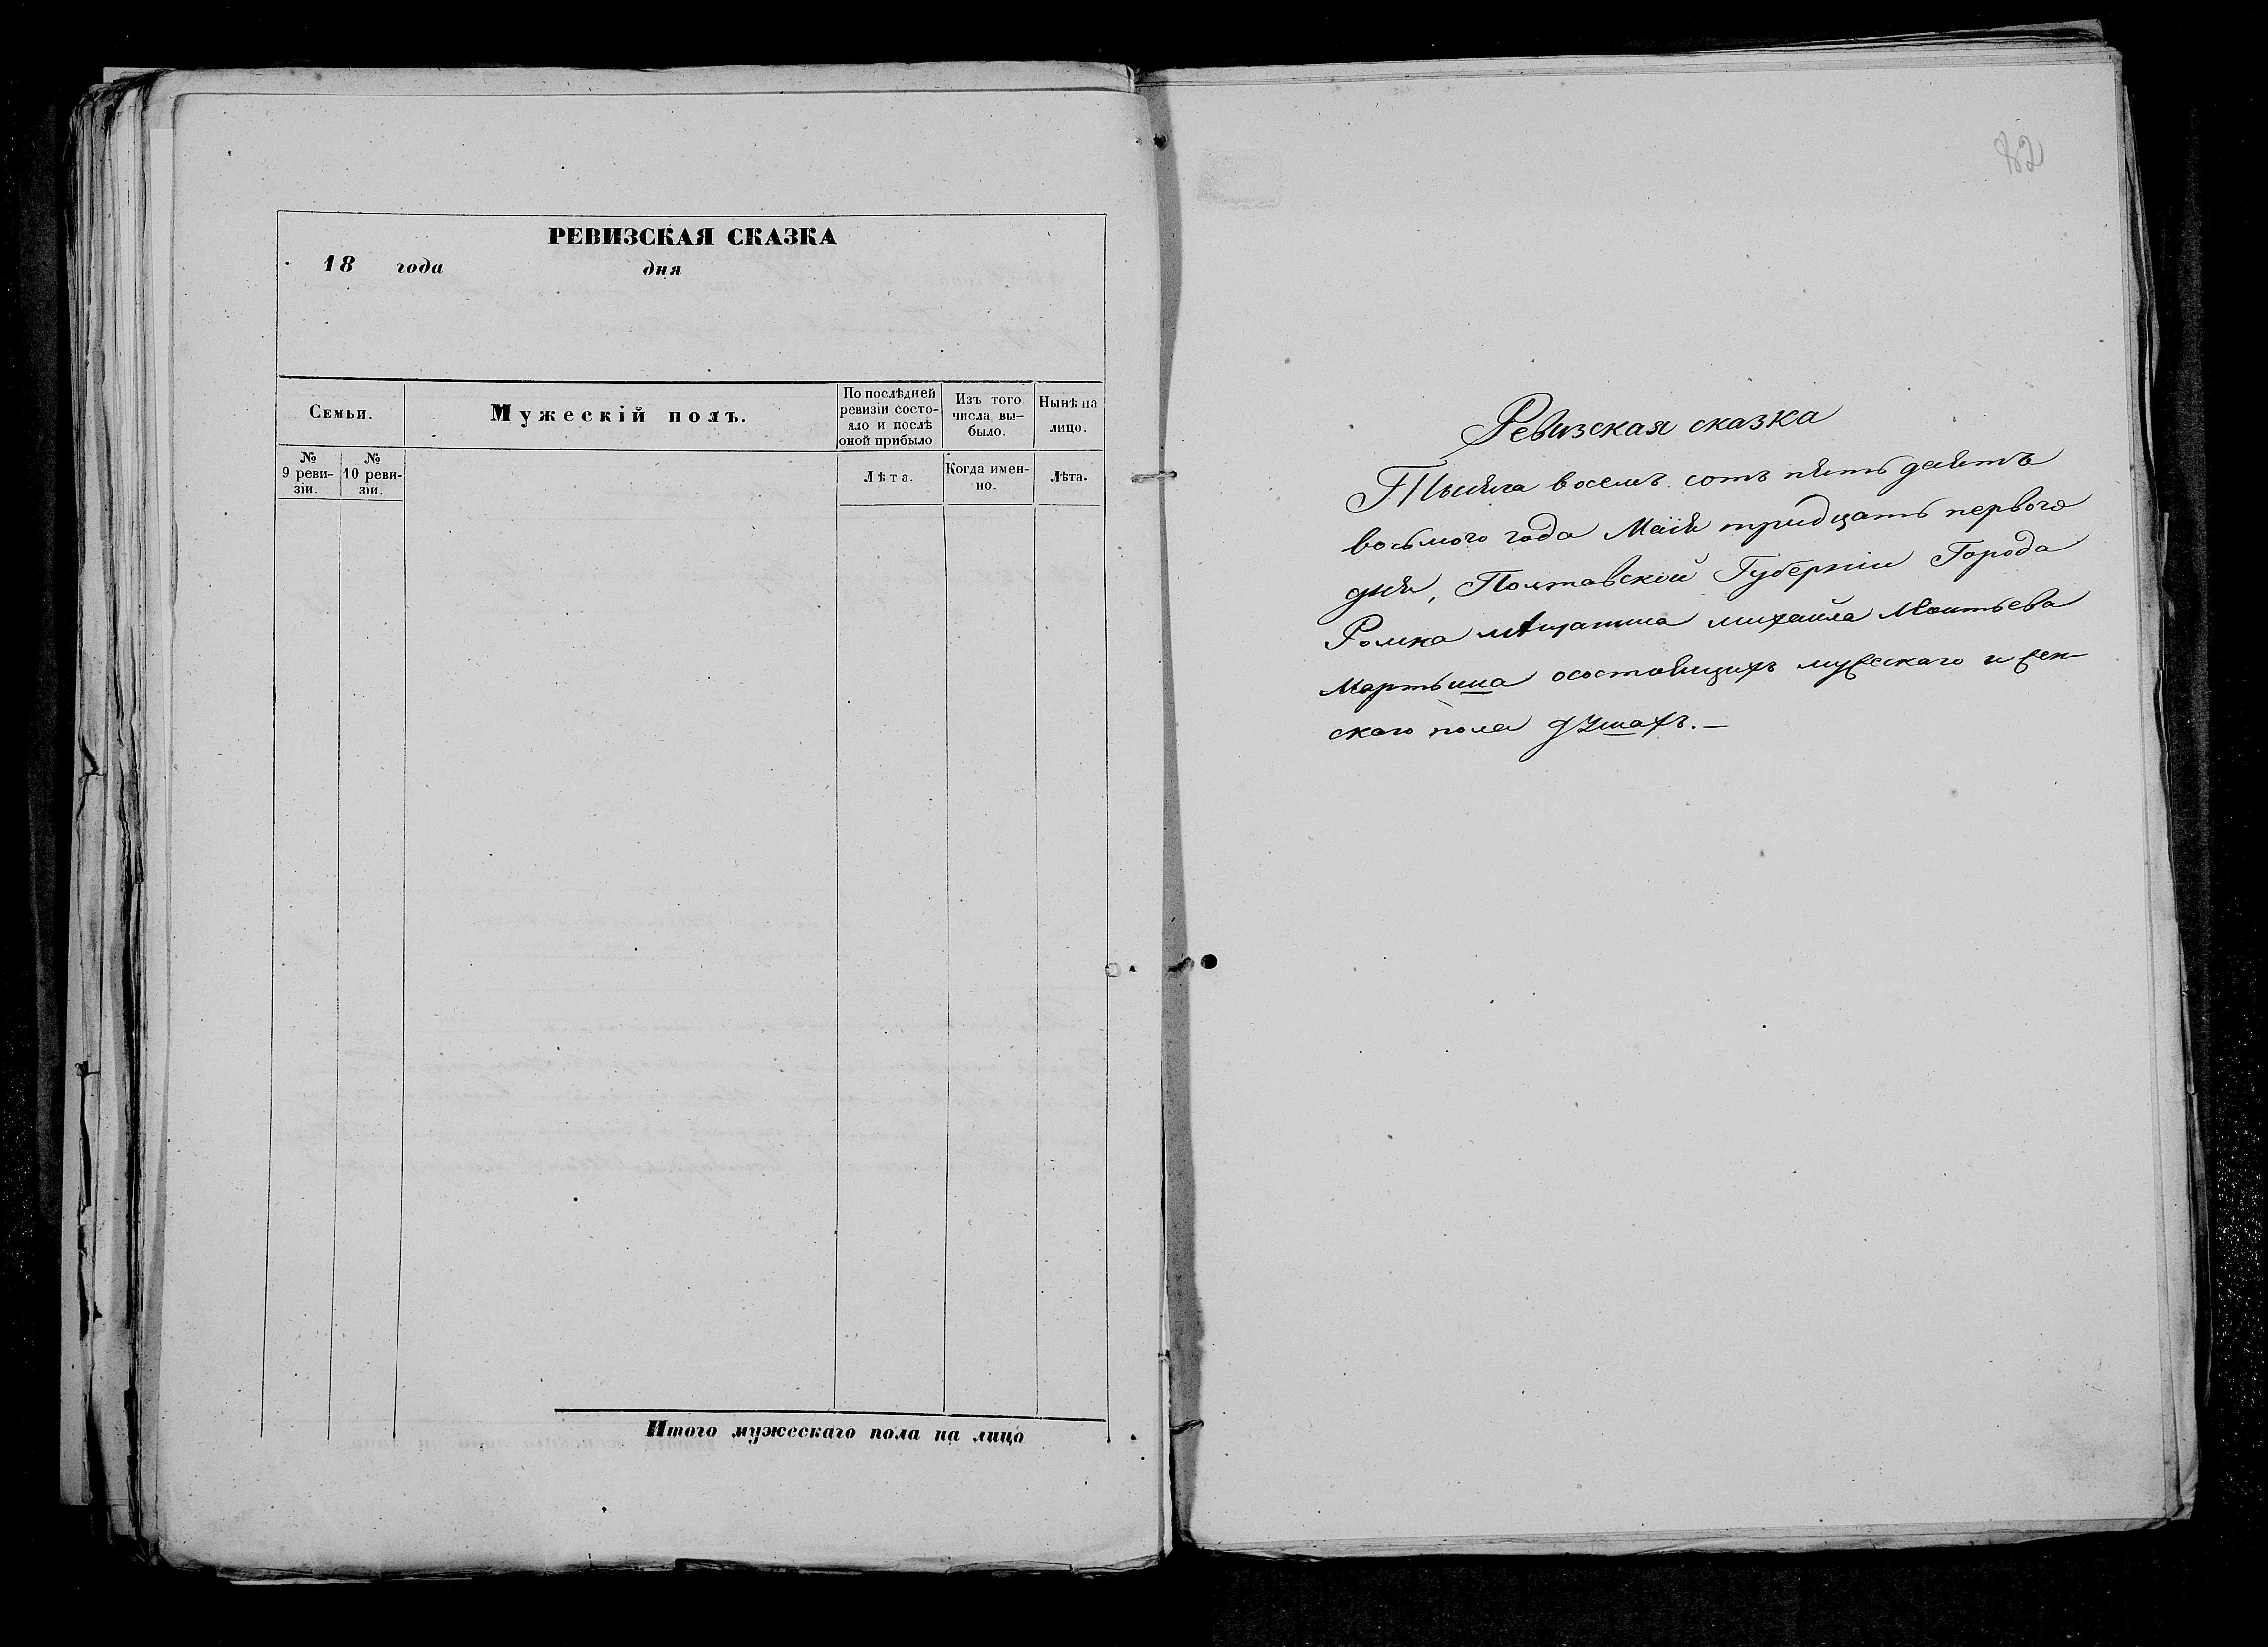 РЕВИЗСКАЯ СКАЗКА
18 года дня
Семьи.
Мужескій полъ.
По послѣдней
ревизіи состо-
яло и послѣ
оной прибыло
Изъ того
числа вы-
было.
Нынѣ на
лицо.
№
9 реви-
зіи.
№
10 реви-
зіи.
Лѣта.
Когда имен-
но.
Лѣта.
Итого мужескаго пола на лицо
82
Ревизская сказка
Тысяча восемъ сотъ пятьдесятъ
восьмого года Маія тридцать первого
дня, Полтавской Губерніи Города
Ромна мѣщанина михаила
Мартынна осостоящихъ мужескаго и жен-
скаго пола душахъ. —